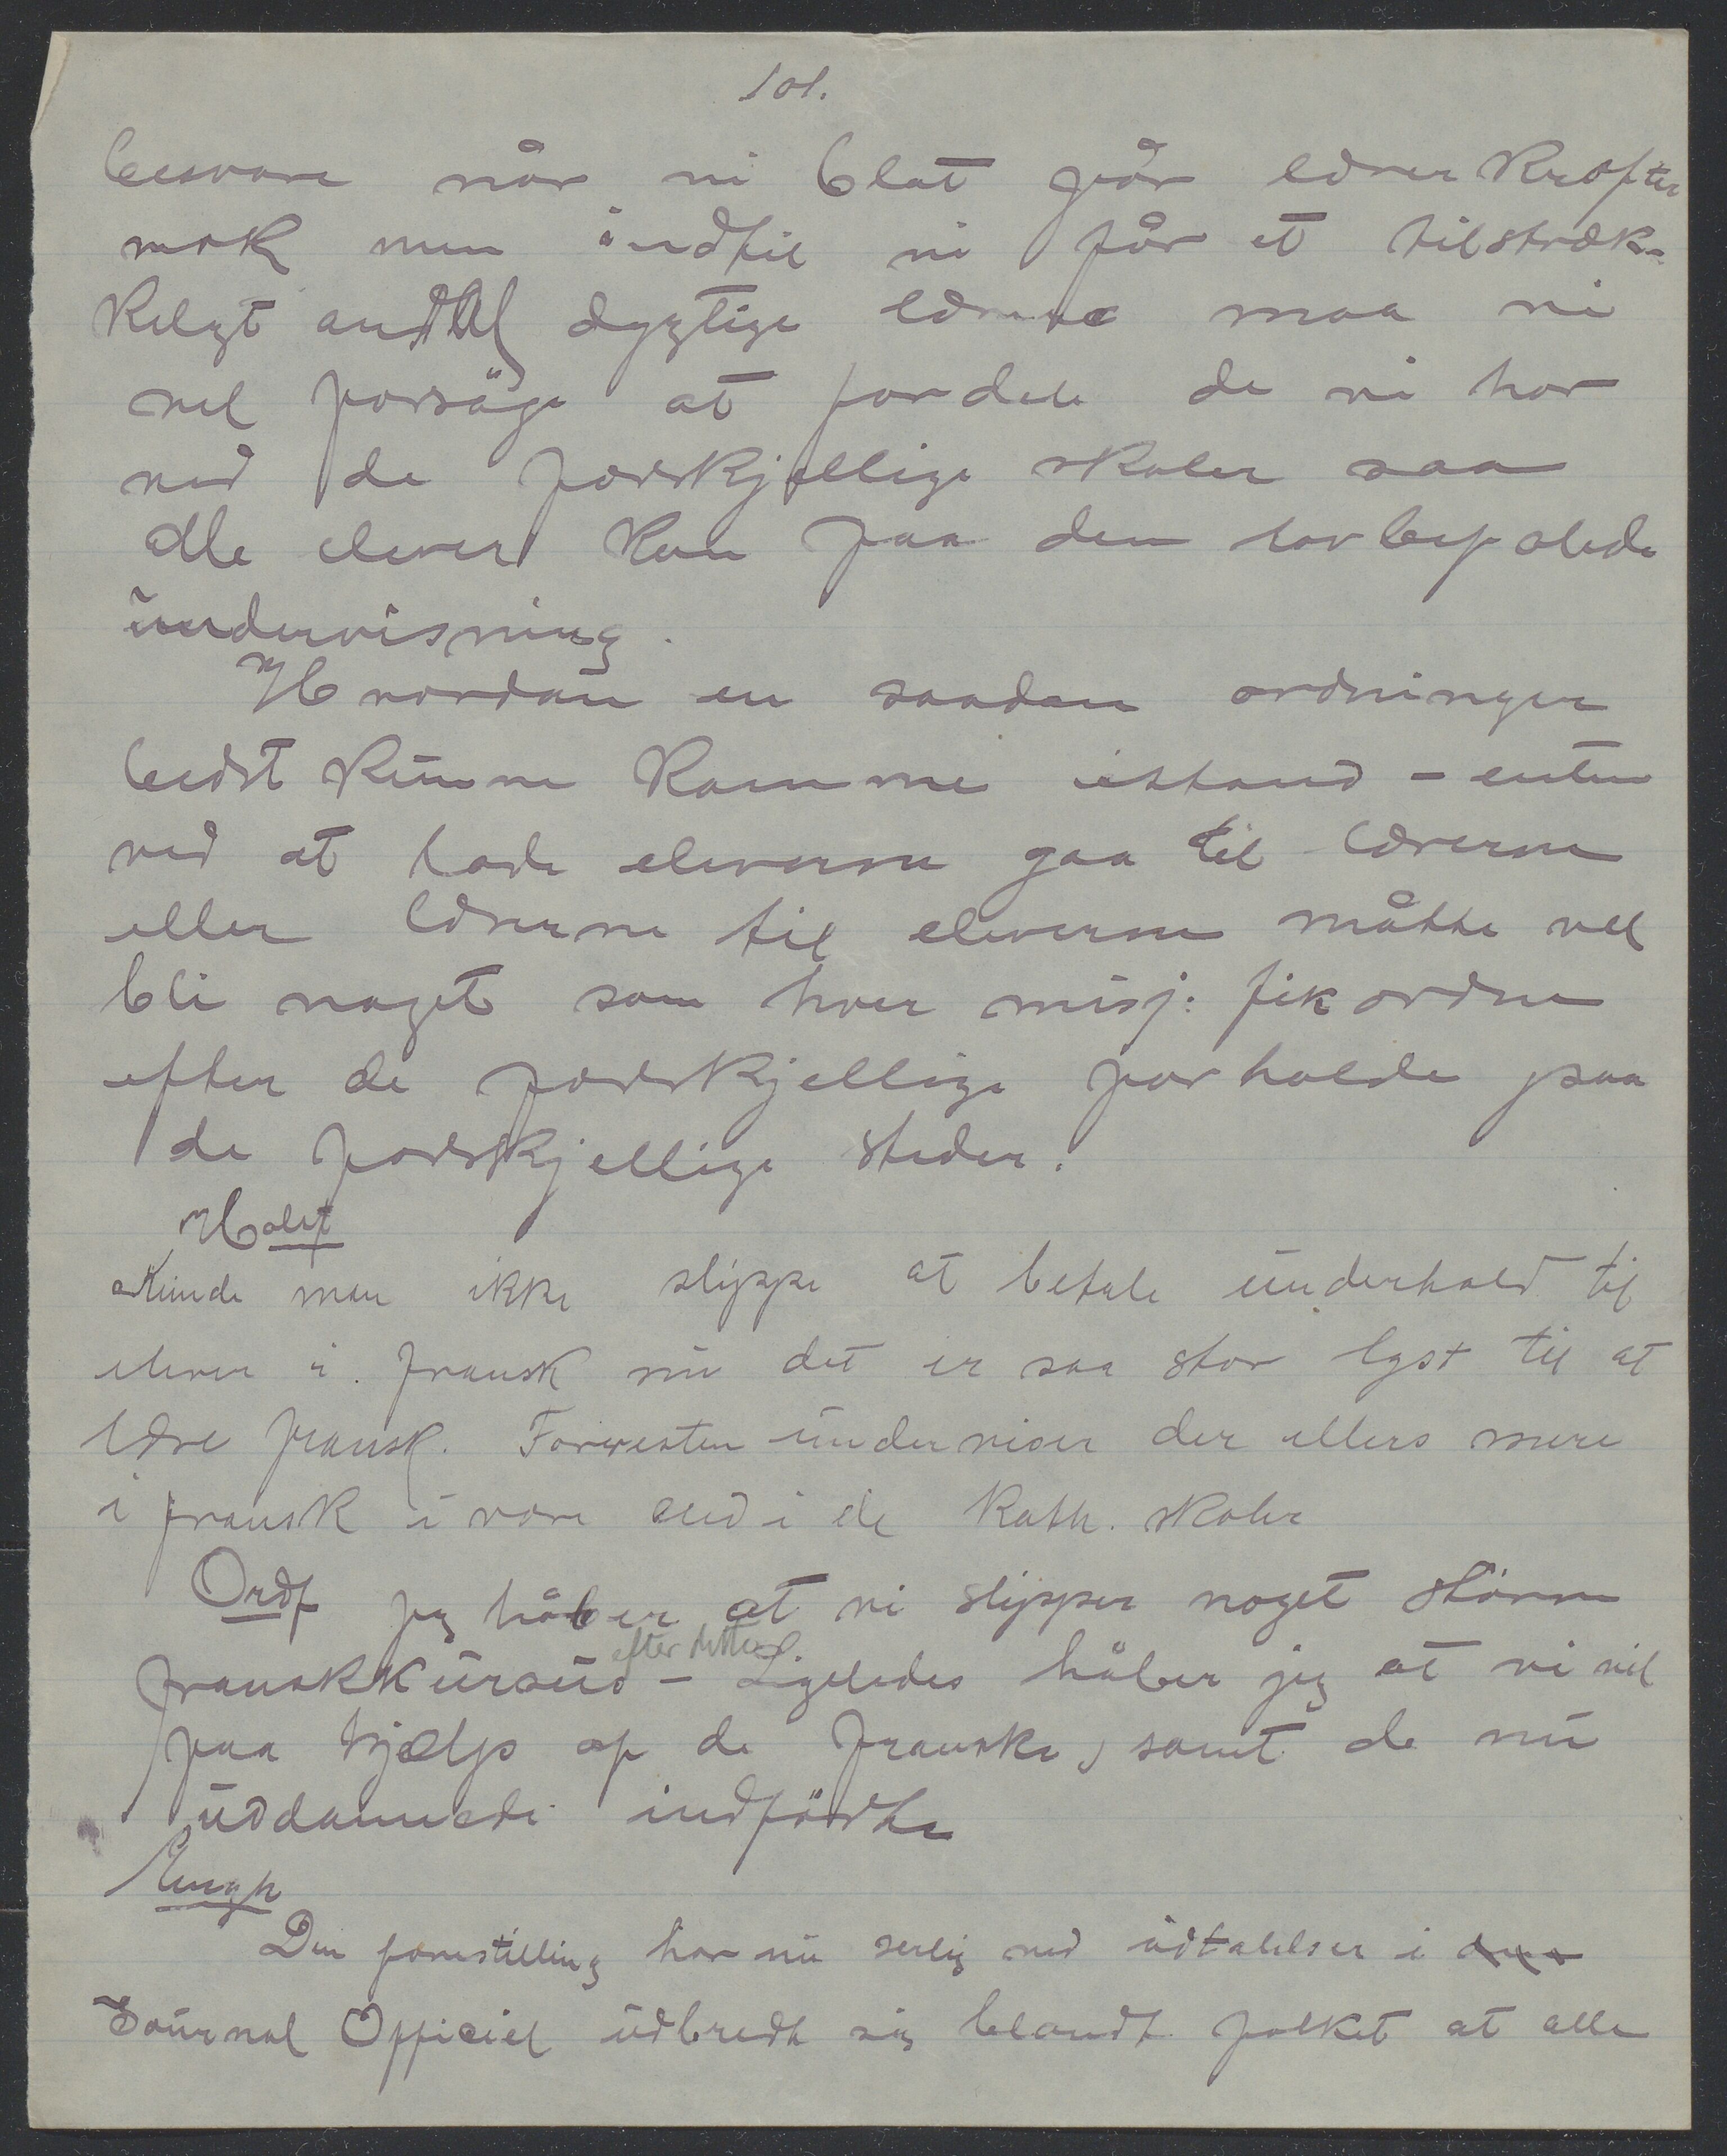 101.
besvare når vi blot får lærerkræfter
nok men indtil vi får et tilstræk-
keligt antal dygtige lærere maa vi
vel forsøge at fordele de vi har
ved de forskjellige skoler saa
alle elever kan faa den lovbefalede
undervisning.
Hvordan en saadan ordninger
bedst kunne komme istand – enten
ved at lade eleverne gaa til lærerne
eller lærerne til eleverne måtte vel
bli noget som hver misj: fik ordne
efter de forskjellige forholde paa
de forskjellige steder.
Holst
Kunde man ikke slippe at betale underhold til
elever i fransk nu det er saa stor lyst til at
lære fransk. Forresten underviser der ellers mere
i fransk i vore end i de kath. skoler
Ordf jeg håber at vi slipper noget større
efter dette
franskkursus – Ligeledes håber jeg at vi vil
faa hjælp af de franske, samt de nu
uddannede indfødte
Den forestilling har nu serlig ved udtalelser i
Journal Officiel udbredt sig blandt folket at alle